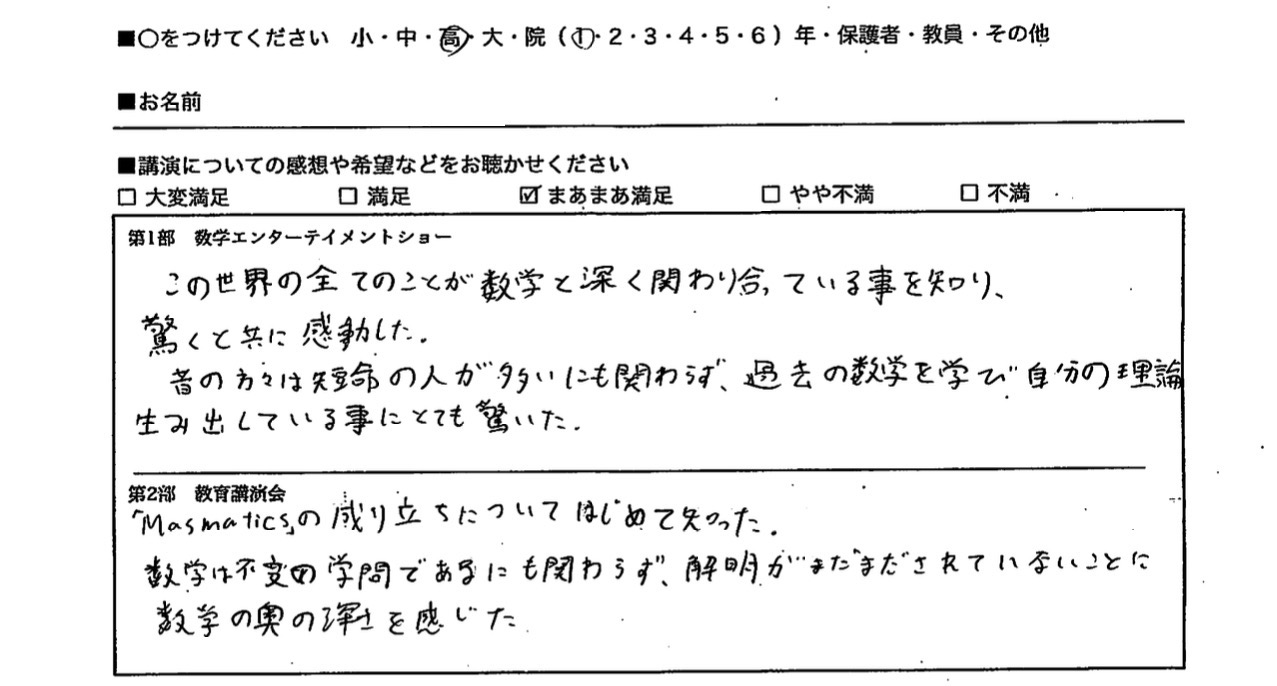 ■○をつけてください 小・中・高・大・院（1・2・3・4・5・6）年・保護者・教員・その他
■お名前
■講演についての感想や希望などをお聴かせください
□ 大変満足 □ 満足 ☑ まあまあ満足 □ やや不満 □ 不満
第1部 数学エンターテイメントショー
この世界の全てのことが数学と深く関わり合っている事を知り、
驚くと共に感動した。
昔の方々は短命の人が多いにも関わらず、過去の数学を学び自分の理論
生み出している事にとても驚いた。
第2部 教育講演会
「Masmatics」の成り立ちについてはじめて知った。
数学は不変の学問であるにも関わらず、解明がまだまだされていないことに
数学の奥の深さを感じた